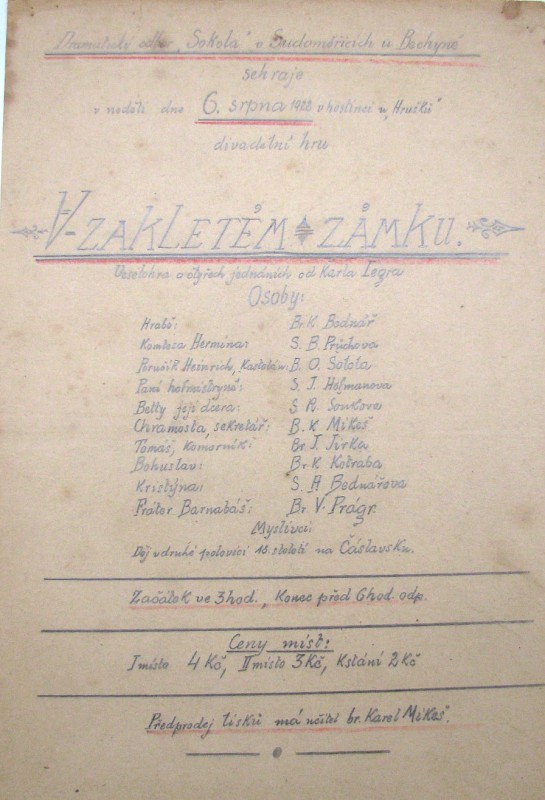 Dramatický odbor „Sokola" v Sudoměřicích u Bechyně
sehraje
v neděli dne 6. srpna 1922 v hostinci u „Hrušků"
divadelní hru
V ZAKLETÉM ZÁMKU.
Veselohra o čtyřech jednáních od Karla Legra
Osoby:
Hrabě: Br. K. Bednář
Komtesa Hermina: S. B. Průchova
Poručík Heinrich, Kastelán: B. O. Sotola
Paní hofmistryně: S. J. Heřmanova
Betty její dcera: S. R. Soukova
Chramosta, sekretář: B. K. Mikeš
Tomáš, komorník: Br. J. Jirka
Bohuslav: Br. K. Kotraba
Kristýna: S. A Bednářova
Fráter Barnabáš: Br. V. Prágr.
Myslivci:
Děj v druhé polovici 18. století na Čáslavsku.
Začátek ve 3 hod., Konec před 6 hod. odp.
Ceny míst:
I místo 4 Kč, II místo 3 Kč, K stání 2 Kč
Předprodej lístků má učitel br. Karel Mikeš.